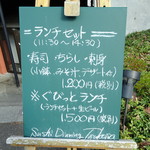 =ランチセット=
(11:30〜14:30)
寿司 ちらし・刺身
(小鉢 みそ汁 デザート付)
1,200円(税別)
※ぐびっとランチ
(ランチセット+生ビール)
1,500円(税別)
Sushi Dining